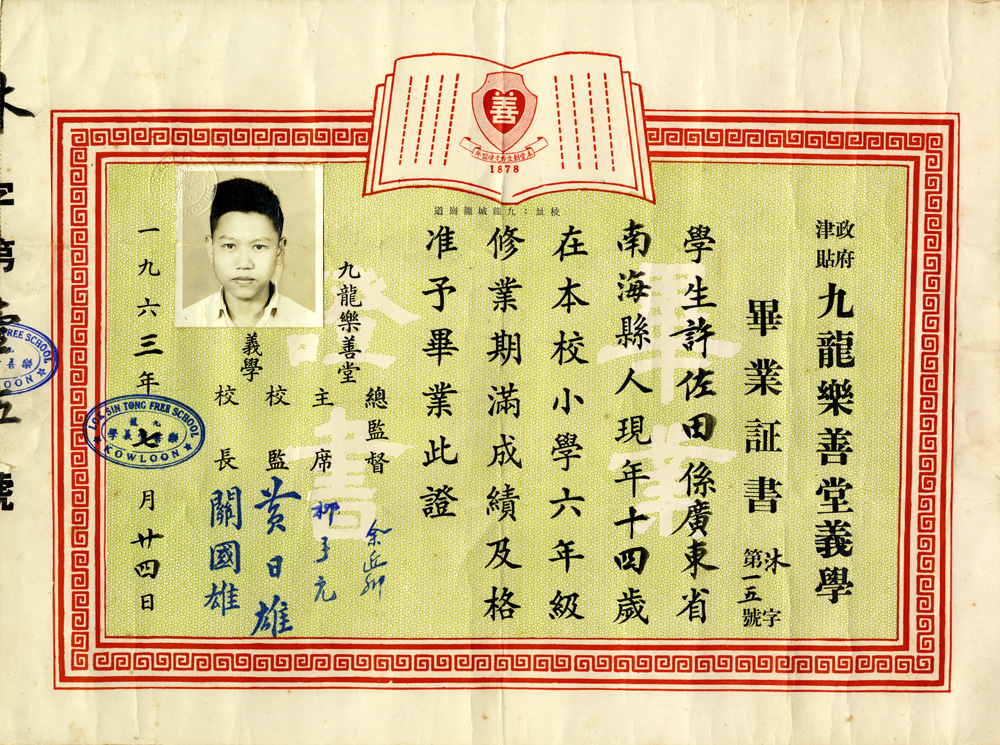 善
本堂創立於光緒四年
1878
校址：九龍城龍崗道
政府
津貼
九龍樂善堂義學
畢業証書
沐字
第一五號
學生許佐田係廣東省
南海縣人現年十四歲
在本校小學六年級
修業期滿成績及格
准予畢業此證
畢業
證書
九龍樂善堂
總監督
主席
義學
校監 黃日雄
校長 關國雄
一九六三年七月廿四日
LOK SIN TONG FREE SCHOOL
九龍
樂善堂義學
KOWLOON
沐字第壹五號
FREE SCHOOL